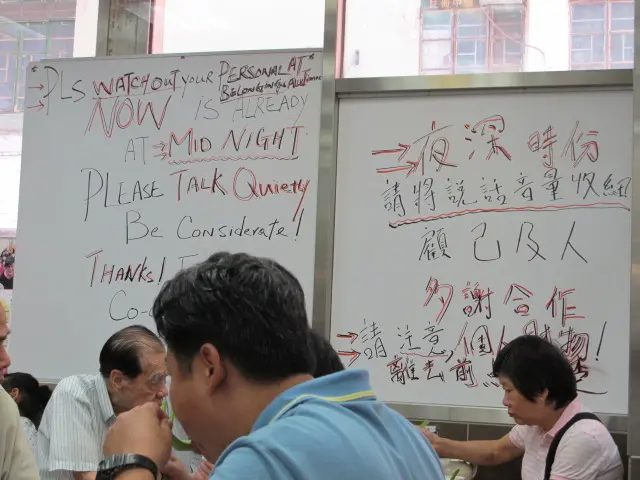 * PLS WATCH OUT your PERSONAL AT *
BELONGINGS ALL Times
NOW IS ALREADY
AT MID NIGHT
PLEASE TALK Quietly
Be Considerate!
THANKS!
Co-
夜深時份
請將說話音量收細
顧己及人
多謝合作
請注意, 個人財物!
離去前